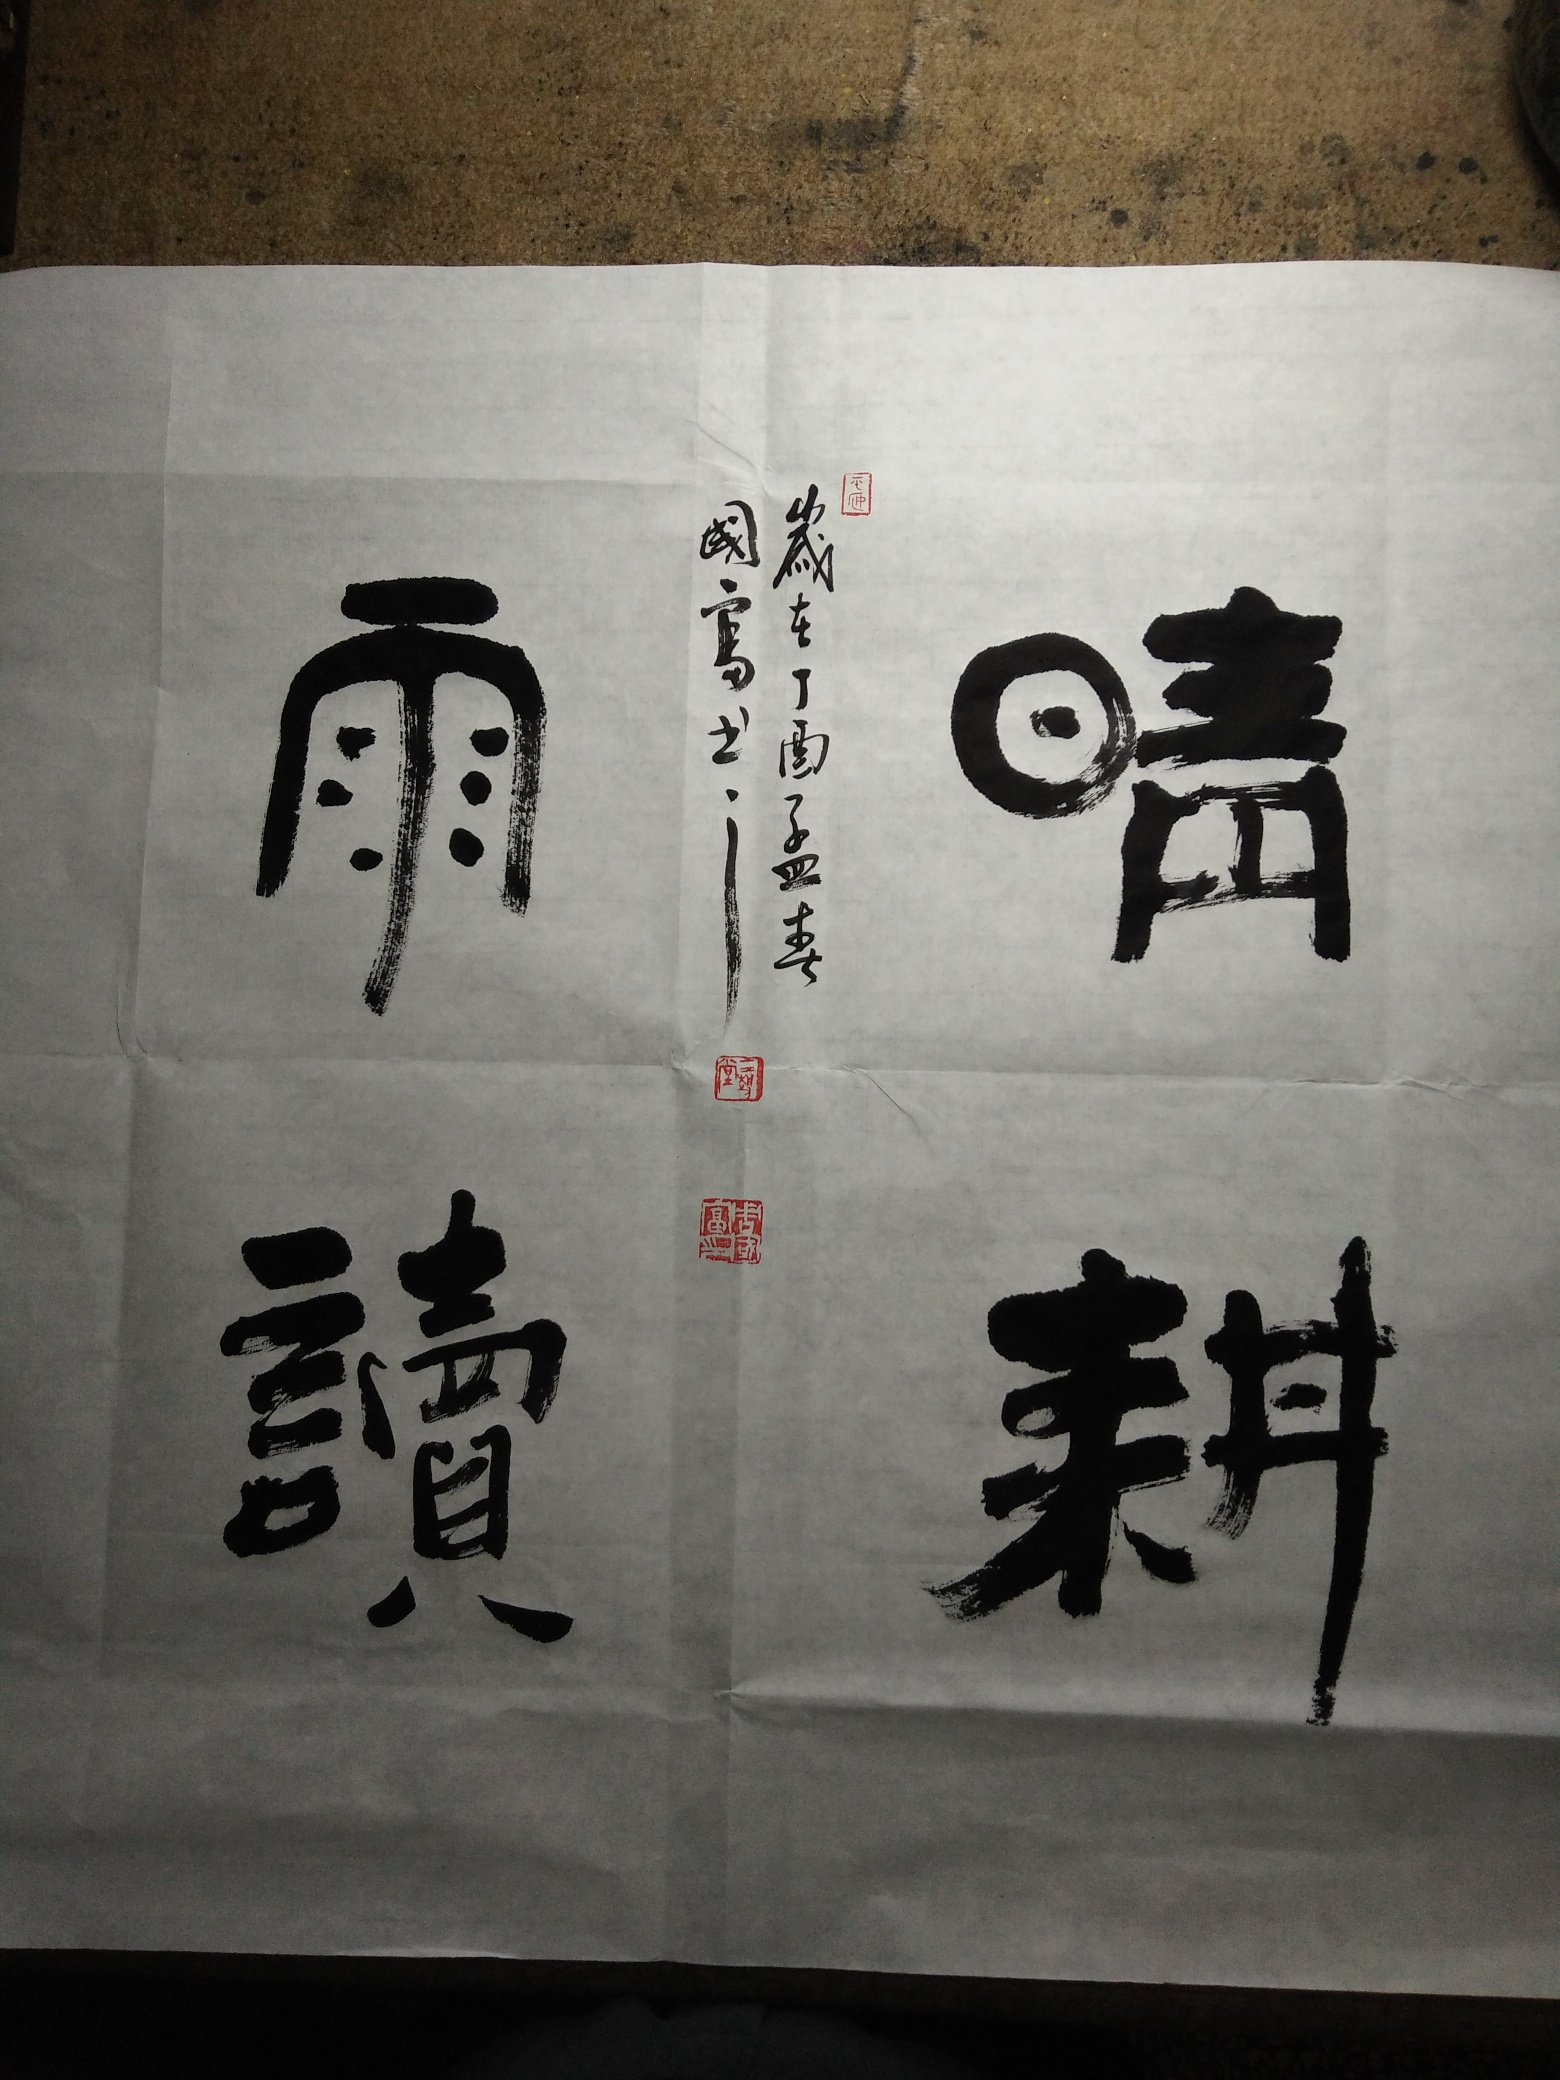 晴耕
歲在丁酉孟春
國富书
雨讀